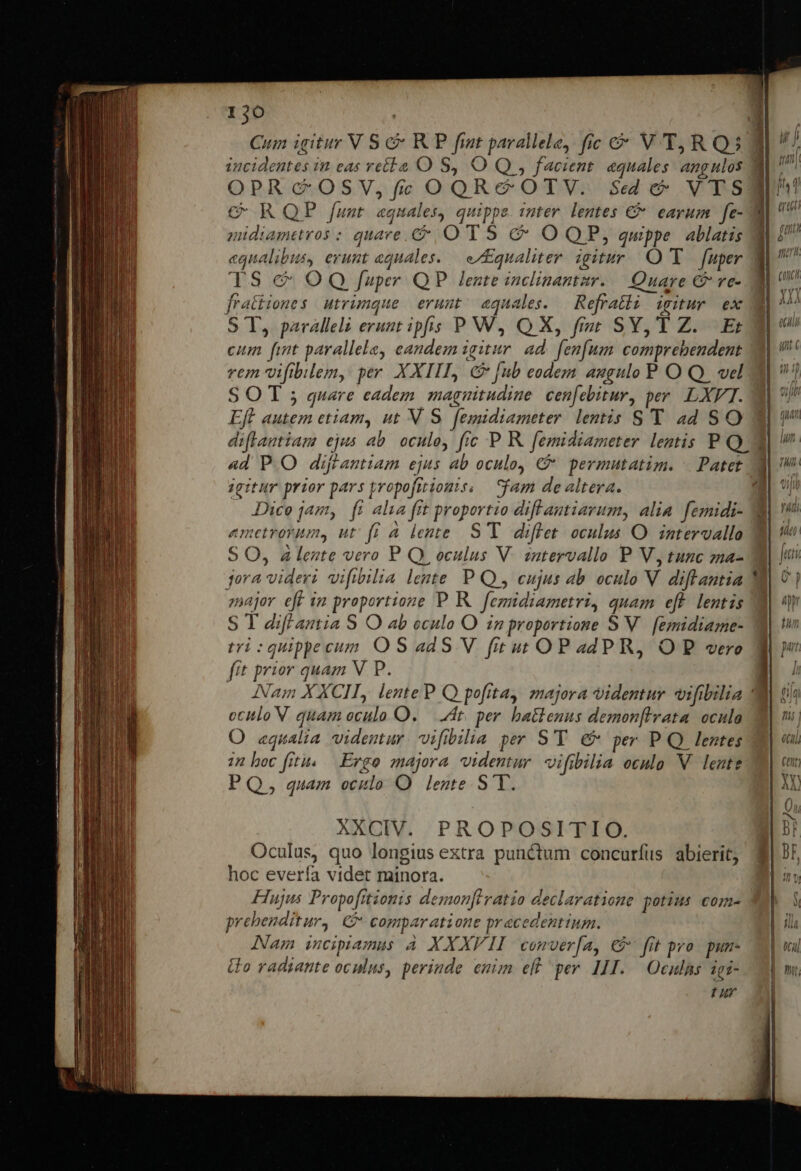 130
Cum igitur V S & R P ſint parallelæ, ſic & V T, R Q;
incidentes in eas rectæ O S, O Q, facient æquales angulos
O P R & O S V, ſic O Q R & O T V. Sed & V T S
& R Q P ſunt æquales, quippe inter lentes & earum ſe-
midiametros: quare & O T S & O Q P, quippe ablatis
æqualibus, erunt æquales. Æqualiter igitur O T ſuper
T S & O Q ſuper Q P lente inclinantur. Quare & re-
fractiones utrimque erunt æquales. Refracti igitur ex
S T, paralleli erunt ipſis P W, Q X, ſint S Y, T Z. Et
cum ſint parallelæ, eandem igitur ad ſenſum comprehendent
rem viſibilem, per XXIII, & ſub eodem angulo P O Q vel
S O T; quare eadem magnitudine cenſebitur, per LXVI.
Eſt autem etiam, ut V S ſemidiameter lentis S T ad S O
diſtantiam ejus ab oculo, ſic P R ſemidiameter lentis P Q
ad P O diſtantiam ejus ab oculo, & permutatim. Patet
igitur prior pars propoſitionis. Jam de altera.
Dico jam, ſi alia ſit proportio diſtantiarum, alia ſemidi-
ametrorum, ut ſi à lente S T diſtet oculus O intervallo
S O, à lente vero P Q oculus V intervallo P V, tunc ma-
jora videri viſibilia lente P Q, cujus ab oculo V diſtantia
major eſt in proportione P R ſemidiametri, quam eſt lentis
S T diſtantia S O ab oculo O in proportione S V ſemidiame-
tri: quippe cum O S ad S V ſit ut O P ad P R, O P vero
ſit prior quam V P.
Nam XXCII, lente P Q poſita, majora videntur viſibilia
oculo V quam oculo O. At per hactenus demonſtrata oculo
O æqualia videntur viſibilia per S T & per P Q lentes
in hoc ſitu. Ergo majora videntur viſibilia oculo V lente
P Q, quam oculo O lente S T.
XXCIV. PROPOSITIO.
Oculus, quo longius extra punctum concurſus abierit,
hoc everſa videt minora.
Hujus Propoſitionis demonſtratio declaratione potius com-
prehenditur, & comparatione præcedentium.
Nam incipiamus à XXXVII converſa, & ſit pro pun-
cto radiante oculus, perinde enim eſt per III. Oculus igi-
tur